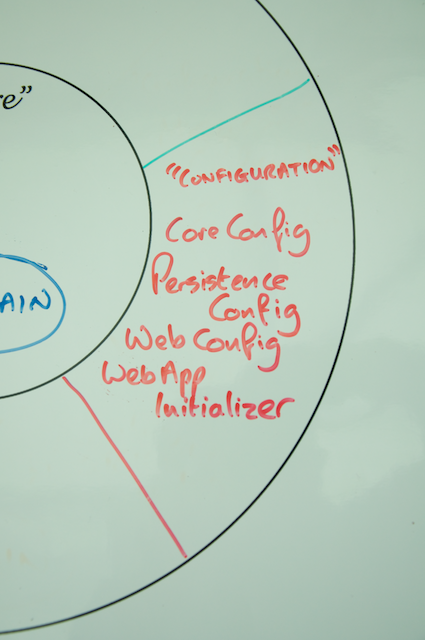 re”
“CONFIGURATION”
Core Config
Persistence
Config
Web Config
Web App
Initializer
AIN